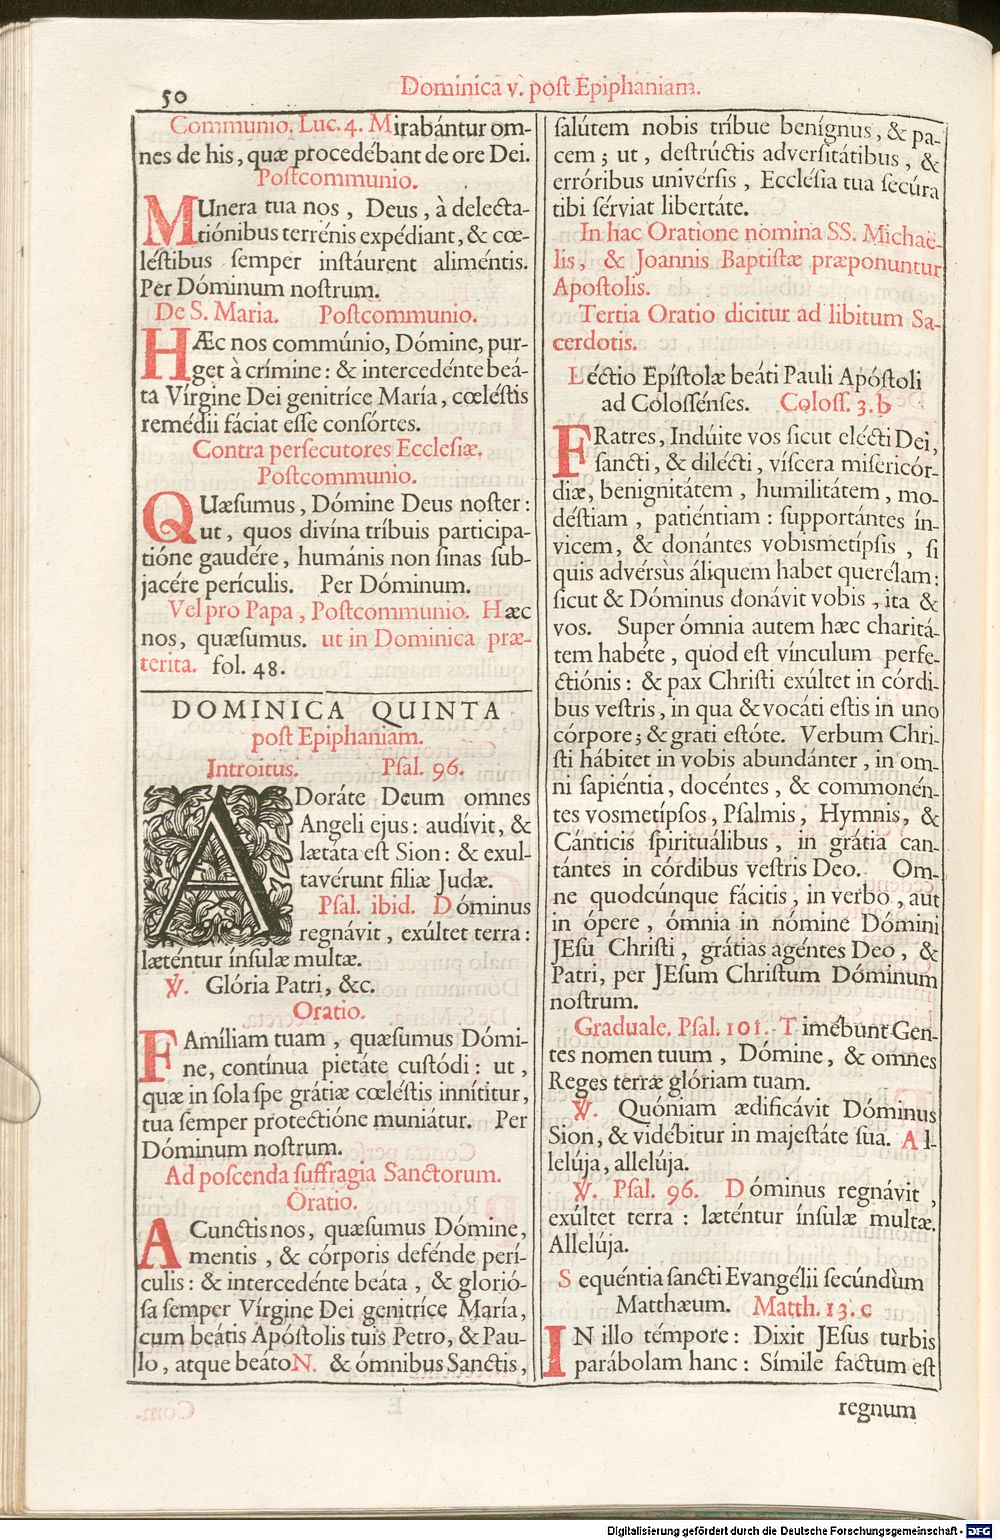 50
Dominica v. poſt Epiphaniam.
Communio. Luc. 4. Mirabántur om-
nes de his, quæ procedébant de ore Dei.
Poſtcommunio.
MUnera tua nos, Deus, à delecta-
tiónibus terrénis expédiant, & cœ-
léſtibus ſemper inſtáurent aliméntis.
Per Dóminum noſtrum.
De S. Maria. Poſtcommunio.
HÆc nos commúnio, Dómine, pur-
get à crímine: & intercedénte beá-
ta Vírgine Dei genitríce María, cœléſtis
remédii fáciat eſſe conſórtes.
Contra perſecutores Eccleſiæ.
Poſtcommunio.
QUæſumus, Dómine Deus noſter:
ut, quos divína tríbuis participa-
tióne gaudére, humánis non ſinas ſub-
jacére perículis. Per Dóminum.
Vel pro Papa, Poſtcommunio. Hæc
nos, quæſumus. ut in Dominica præ-
terita. fol. 48.
DOMINICA QUINTA
poſt Epiphaniam.
Introitus. Pſal. 96.
ADoráte Deum omnes
Angeli ejus: audívit, &
lætáta eſt Sion: & exul-
tavérunt filiæ Judæ.
Pſal. ibid. Dóminus
regnávit, exúltet terra:
læténtur ínſulæ multæ.
℣. Glória Patri, &c.
Oratio.
FAmíliam tuam, quæſumus Dómi-
ne, contínua pietáte cuſtódi: ut,
quæ in ſola ſpe grátiæ cœléſtis innítitur,
tua ſemper protectióne muniátur. Per
Dóminum noſtrum.
Ad poſcenda ſuffragia Sanctorum.
Oratio.
A Cunctis nos, quæſumus Dómine,
mentis, & córporis defénde perí-
culis: & intercedénte beáta, & glorió-
ſa ſemper Vírgine Dei genitríce María,
cum beátis Apóſtolis tuis Petro, & Pau-
lo, atque beáto N. & ómnibus Sanctis,
ſalútem nobis tríbue benígnus, & pa-
cem; ut, deſtrúctis adverſitátibus, &
erróribus univérſis, Eccléſia tua ſecúra
tibi ſérviat libertáte.
In hac Oratione nomina SS. Michae-
lis, & Joannis Baptiſtæ præponuntur
Apoſtolis.
Tertia Oratio dicitur ad libitum Sa-
cerdotis.
Léctio Epíſtolæ beáti Pauli Apóſtoli
ad Coloſſénſes. Coloſſ. 3. b
FRatres, Indúite vos ſicut elécti Dei,
ſancti, & dilécti, víſcera miſericór-
diæ, benignitátem, humilitátem, mo-
déſtiam, patiéntiam: ſupportántes ín-
vicem, & donántes vobismetípſis, ſi
quis advérsùs áliquem habet querélam:
ſicut & Dóminus donávit vobis, ita &
vos. Super ómnia autem hæc charitá-
tem habéte, quod eſt vínculum perfe-
ctiónis: & pax Chriſti exúltet in córdi-
bus veſtris, in qua & vocáti eſtis in uno
córpore; & grati eſtóte. Verbum Chri-
ſti hábitet in vobis abundánter, in om-
ni sapiéntia, docéntes, & commonén-
tes vosmetípſos, Pſalmis, Hymnis, &
Cánticis ſpirituálibus, in grátia can-
tántes in córdibus veſtris Deo. Om-
ne quodcúnque fácitis, in verbo, aut
in ópere, ómnia in nómine Dómini
JEſu Chriſti, grátias agéntes Deo, &
Patri, per JEſum Chriſtum Dóminum
noſtrum.
Graduale. Pſal. 101. Timébunt Gen-
tes nomen tuum, Dómine, & omnes
Reges terræ glóriam tuam.
℣. Quóniam ædificávit Dóminus
Sion, & vidébitur in majeſtáte ſua. Al-
lelúja, allelúja.
℣. Pſal. 96. Dóminus regnávit,
exúltet terra: læténtur ínſulæ multæ.
Allelúja.
Sequéntia ſancti Evangélii ſecúndùm
Matthæum. Matth. 13. c
IN illo témpore: Dixit JEſus turbis
parábolam hanc: Símile factum eſt
regnum
Digitalisierung gefördert durch die Deutsche Forschungsgemeinschaft - DFG